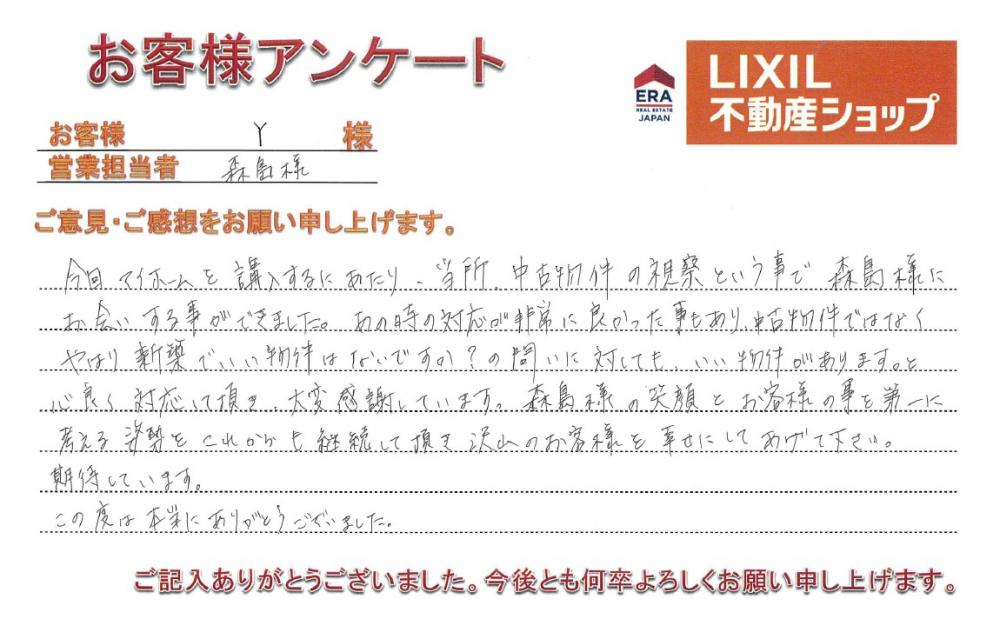 お客様アンケート
ERA
REAL ESTATE
JAPAN
LIXIL
不動産ショップ
お客様 Y 様
営業担当者 森島様
ご意見・ご感想をお願い申し上げます。
今回マイホームを講入するにあたり、当所、中古物件の視察という事で森島様に
お会いする事ができました。あの時の対応が非常に良かった事もあり、中古物件ではなく
やはり新築でいい物件はないですか?の問いに対しても、いい物件があります。と
心良く対応して頂き、大変感謝しています。森島様の笑顔とお客様の事を第一に
考える姿勢をこれからも継続して頂き沢山のお客様を幸せにしてあげて下さい。
期待しています。
この度は本当にありがとうございました。
ご記入ありがとうございました。今後とも何卒よろしくお願い申し上げます。